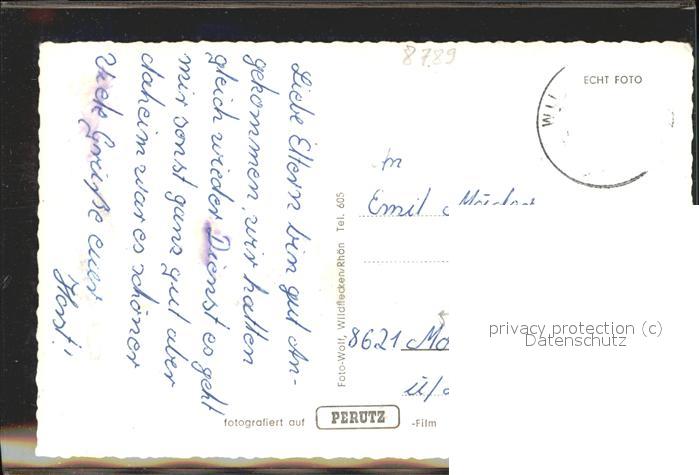 8789
Liebe Eltern bin gut An-
gekommen, wir hatten
gleich wieder Dienst es geht
mir sonst ganz gut aber
daheim war es schöner
Viele Grüße euer
Horst!
ECHT FOTO
An
Emil
8621
ü/
Foto-Wolf, Wildflecken/Rhön Tel. 605
fotografiert auf PERUTZ -Film
privacy protection (c)
Datenschutz